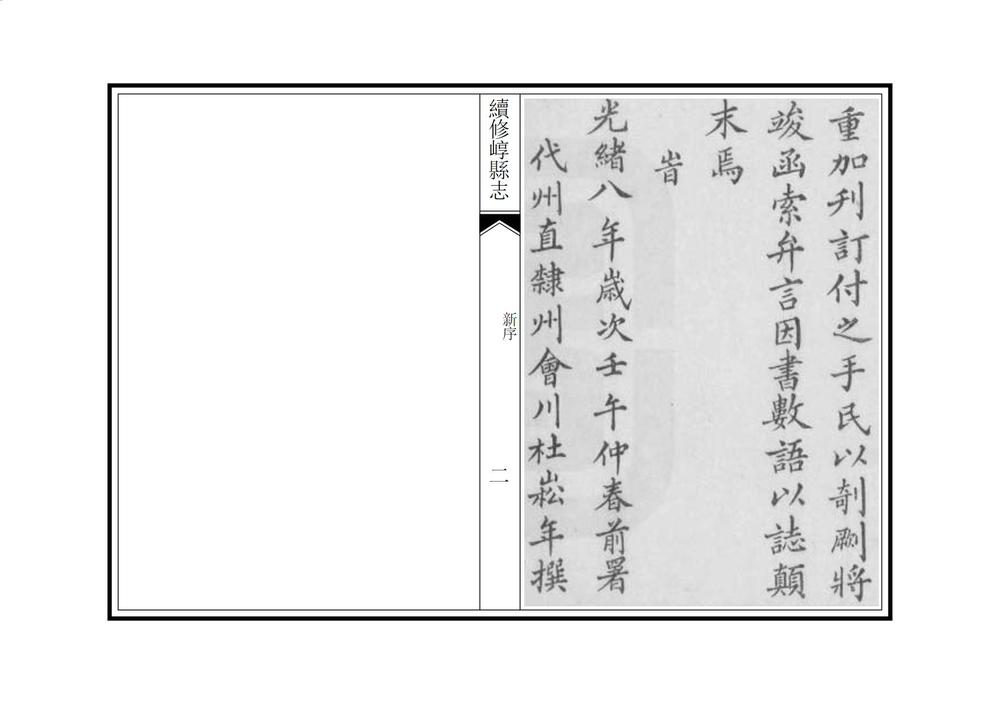 重加刋訂付之手民以剞劂將
竣函索弁言因書數語以誌顛
末焉
旹
光緒八年歲次壬午仲春前署
代州直隸州會川杜崧年撰
續修崞縣志
新序
二